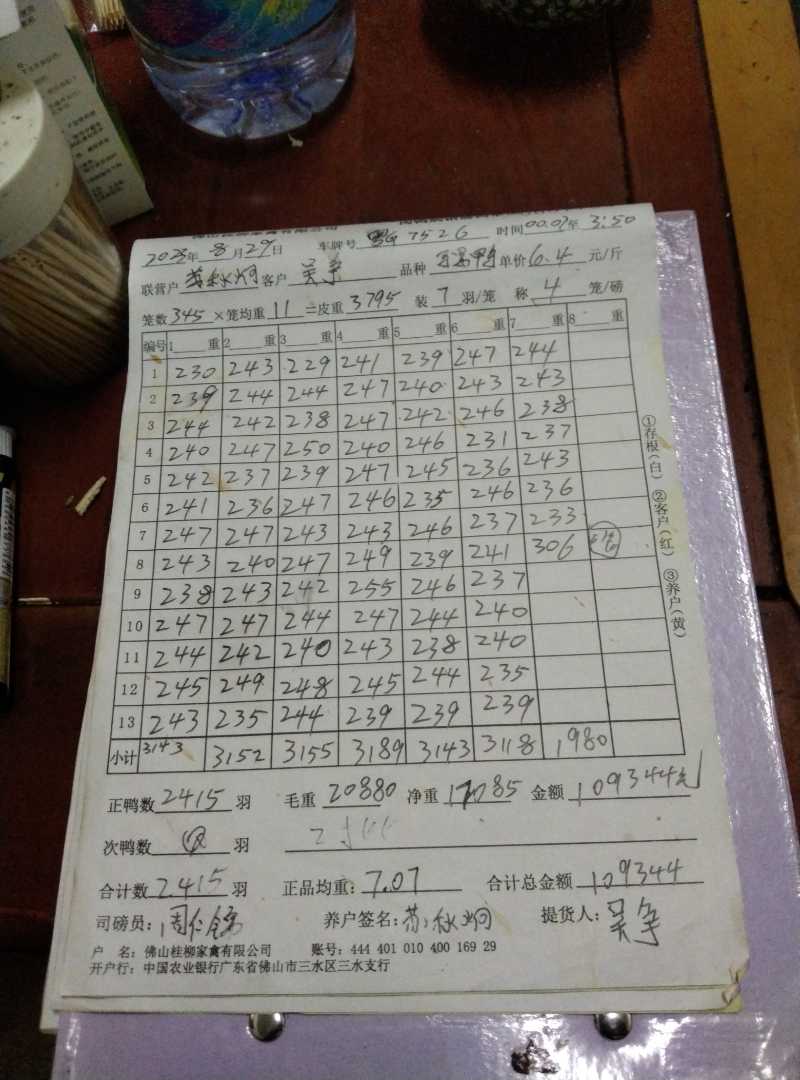 2023年 8月29日 车牌号 7526 时间00.07至 3:50
联营户 苏秋炯 客户 吴争 品种 鸭 单价 6.4 元/斤
笼数 345 ×笼均重 11 =皮重 3795 装 7 羽/笼 称 4 笼/磅
编号 1 重 2 重 3 重 4 重 5 重 6 重 7 重 8 重
1 230 243 229 241 239 247 244
2 239 244 244 247 240 243 243
3 244 242 238 247 242 246 238
4 240 247 250 240 246 231 237
5 242 237 239 247 245 236 243
6 241 236 247 246 235 246 236
7 247 247 243 243 246 237 233
8 243 240 247 249 239 241 306
9 238 243 242 255 246 237
10 247 247 244 247 244 240
11 244 242 240 243 238 240
12 245 249 248 245 244 235
13 243 235 244 239 239 239
小计 3143 3152 3155 3189 3143 3118 1980
正鸭数 2415 羽 毛重 20880 净重 17085 金额 109344元
次鸭数 羽
合计数 2415 羽 正品均重: 7.07 合计总金额 109344
司磅员: 周 养户签名: 苏秋炯 提货人: 吴争
户 名: 佛山桂柳家禽有限公司 账号: 444 401 010 400 169 29
开户行: 中国农业银行广东省佛山市三水区三水支行
①存根(白) ②客户(红) ③养户(黄)